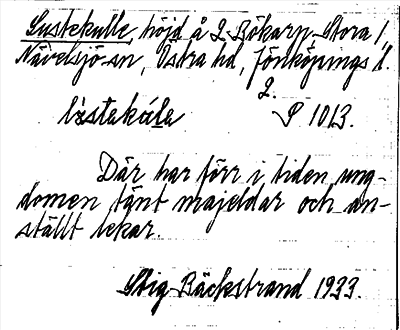 Lustekulle, höjd å 2 Bökarp Stora 1,
Nävelsjö sn, Östra hd, Jönköpings l.
2.
lùstekúl̯e S 1013.
Där har förr i tiden ung-
domen tänt majeldar och an-
ställt lekar.
Stig Bäckstrand 1933.